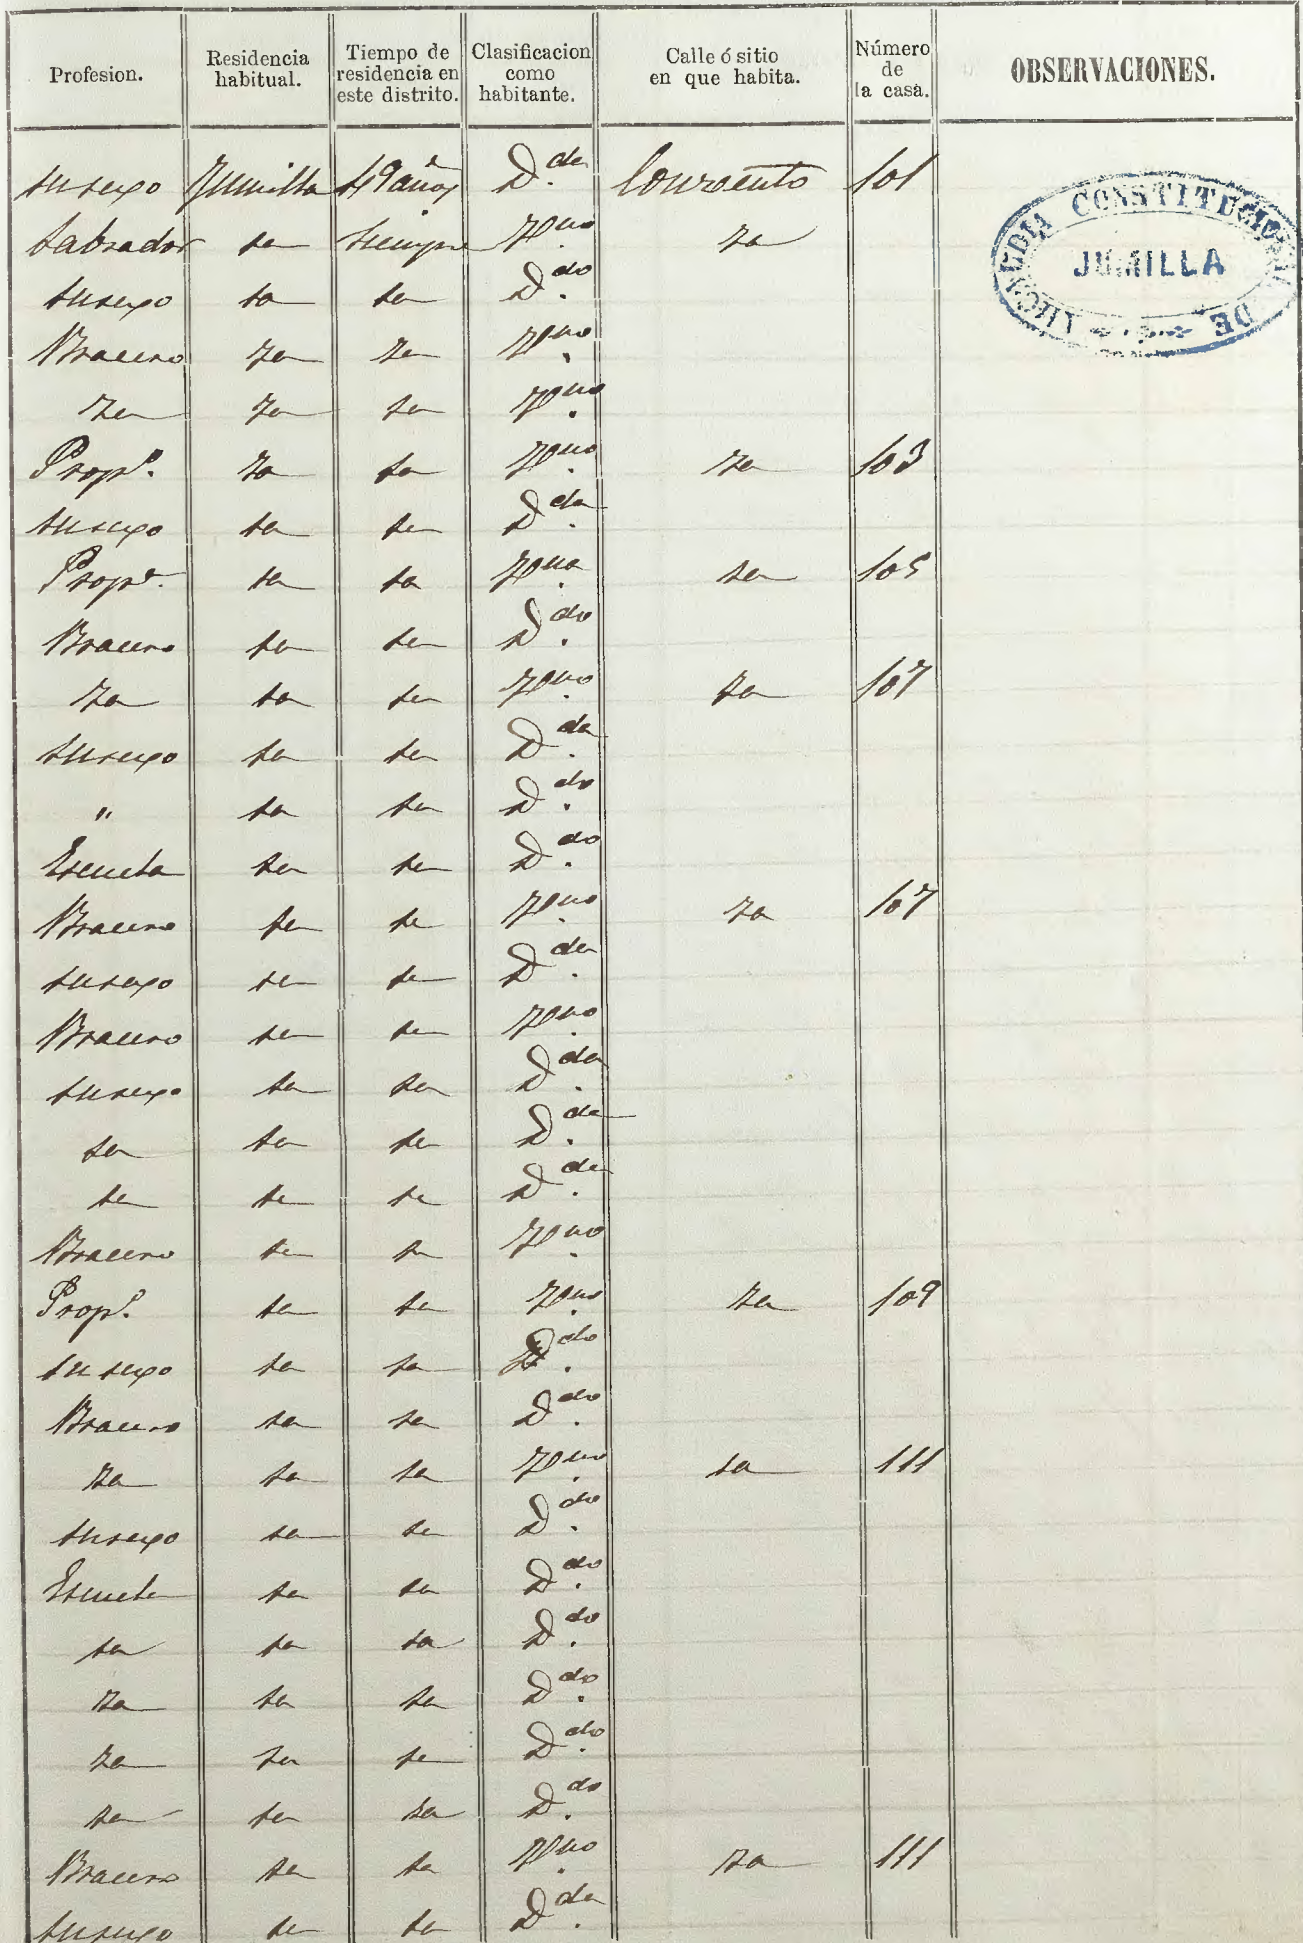 Profesion. Residencia habitual. Tiempo de residencia en este distrito. Clasificacion como habitante. Calle ó sitio en que habita. Número de la casa. OBSERVACIONES.
ALCALDIA CONSTITUCIONAL DE
JUMILLA
su sexo Jumilla 49 años D.da Convento 101
Labrador id siempre V.no id
su sexo id id D.do
Bracero id id V.no
id id id V.no
Prop.o id id V.no id 103
su sexo id id D.da
Prop.a id id V.na id 105
Bracero id id D.do
id id id V.no id 107
su sexo id id D.da
" id id D.do
Escuela id id D.do
Bracero id id V.no id 107
su sexo id id D.da
Bracero id id V.no
su sexo id id D.da
id id id D.da
id id id D.da
Bracero id id V.no
Prop.o id id V.no id 109
su sexo id id D.do
Bracero id id D.do
id id id V.no id 111
su sexo id id D.do
Escuela id id D.do
id id id D.do
id id id D.do
id id id D.do
id id id D.do
Bracero id id V.no id 111
su sexo id id D.da